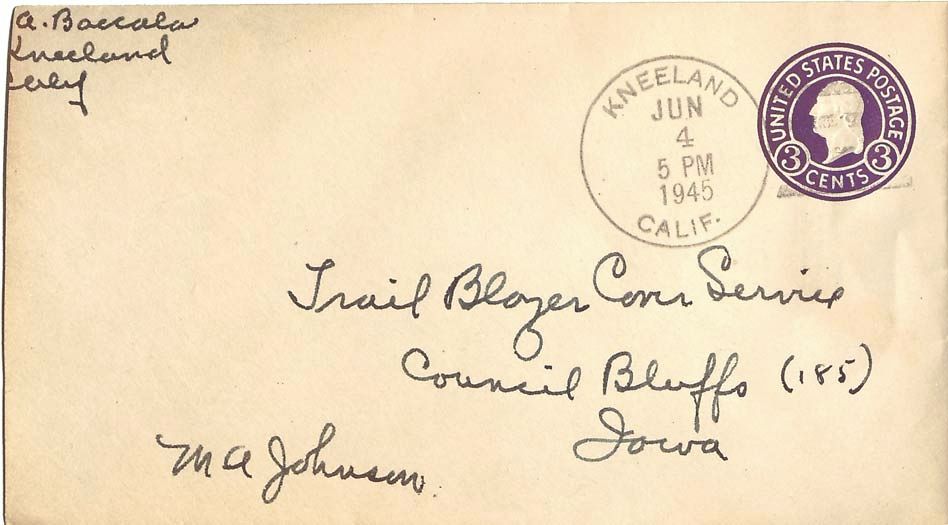 A. Baccala
Kneeland
Calif
KNEELAND
JUN
4
5 PM
1945
CALIF.
UNITED STATES POSTAGE
3 CENTS 3
Trail Blazer Cover Service
Council Bluffs (185)
Iowa
MA Johnson.